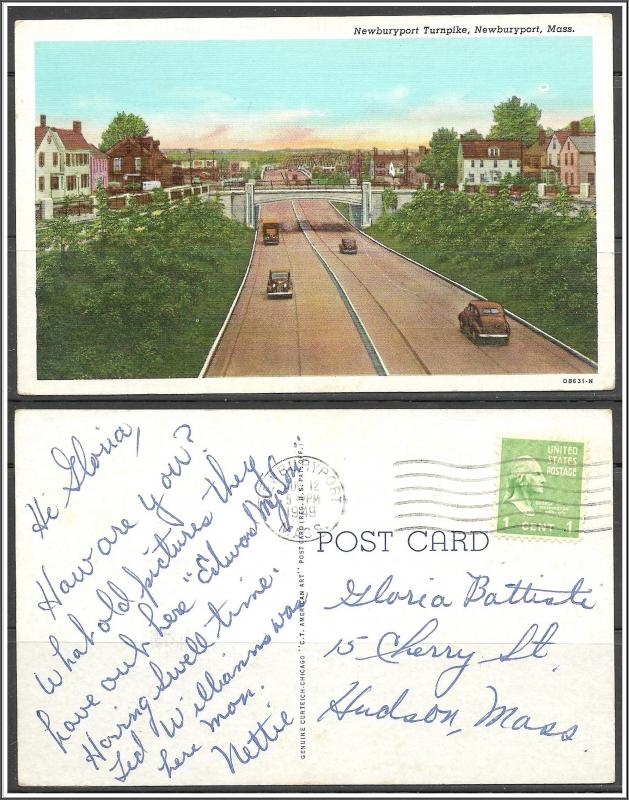 Newburyport Turnpike, Newburyport, Mass.
OB631-N
Hi Gloria,
How are you?
What old pictures they
have out here "Edward
Having swell time.
Ted Williams was
here mon.
Nettie
GENUINE CURTEICH-CHICAGO "C.T. AMERICAN ART" POST CARD (REG. U.S. PAT. OFF.)
NEWBURYPORT
12
5 PM
MASS.
UNITED
STATES
POSTAGE
1 CENT 1
POST CARD
Gloria Battisti
15 Cherry St.
Hudson, Mass.